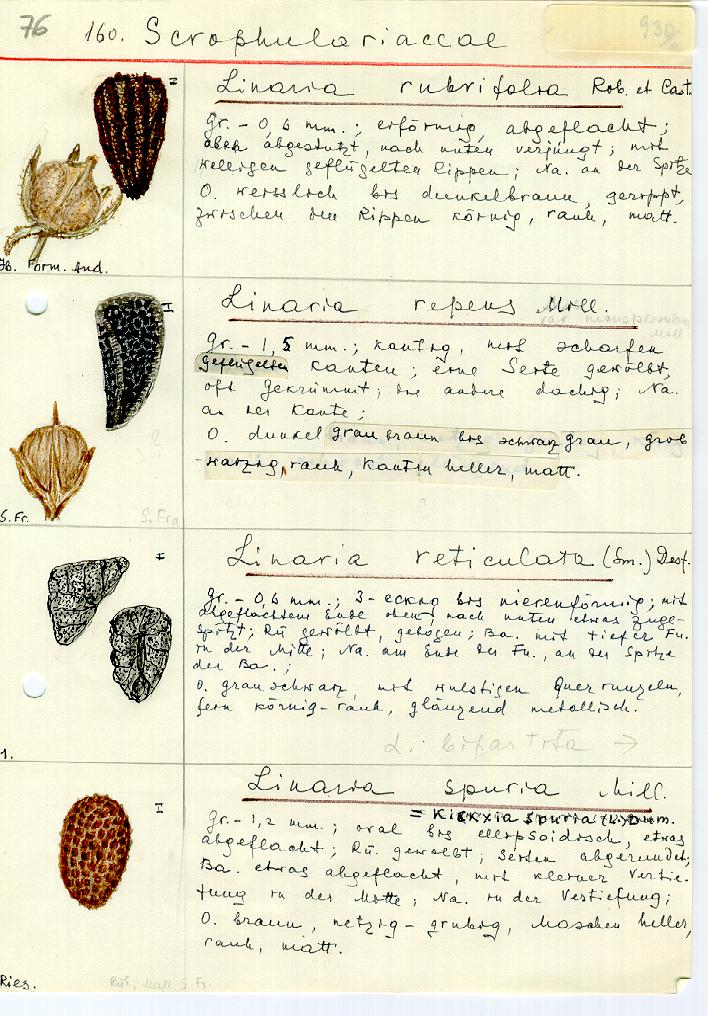 76 160. Scrophulariaceae 930/a
Linaria rubrifolia Rob. et Cast.
Gr. - 0,6 mm.; eiförmig, abgeflacht;
oben abgestutzt, nach unten verjüngt; mit
welligen geflügelten Rippen; Na. an der Spitze
O. weisslich bis dunkelbraun, gerippt,
zwischen den Rippen körnig, rauh, matt.
Form. And.
Linaria repens Mill.
Gr. - 1,5 mm.; kantig, mit scharfen
geflügelten Kanten; eine Seite gewölbt,
oft gekrümmt; die andere dachig; Na.
an der Kante;
O. dunkel graubraun bis schwarzgrau, grob
warzig, rauh, Kanten heller, matt.
S. Fr. S. Fra
Linaria reticulata (Sm.) Desf.
Gr. - 0,6 mm.; 3-eckig bis nierenförmig; mit
abgeflachtem Ende oben; nach unten etwas zuge-
spitzt; Rü. gewölbt, gebogen; Ba. mit tiefer Fu.
in der Mitte; Na. am Ende der Fu., an der Spitze
der Ba.;
O. grauschwarz, mit wulstigen Querrunzeln,
fein körnig-rauh, glänzend metallisch.
L. bipartita →
1.
Linaria spuria Mill.
= Kickxia spuria (L.) Dum.
Gr. - 1,2 mm.; oval bis ellipsoidisch, etwas
abgeflacht; Rü. gewölbt; Seiten abgerundet;
Ba. etwas abgeflacht, mit kleiner Vertie-
fung in der Mitte; Na. in der Vertiefung;
O. braun, netzig-grubig, Maschen heller,
rauh, matt.
Ries. S. Fr.